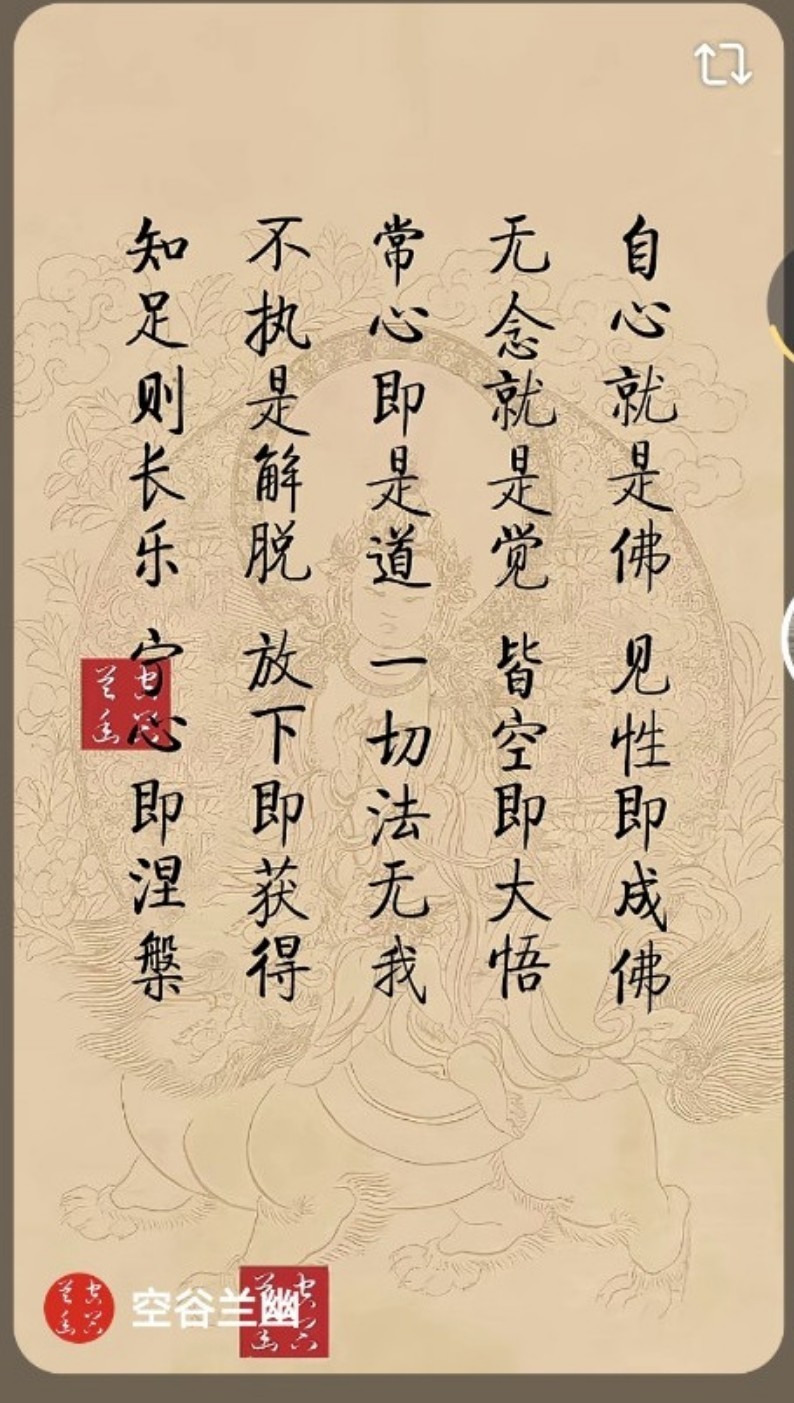 自心就是佛 见性即成佛
无念就是觉 皆空即大悟
常心即是道 一切法无我
不执是解脱 放下即获得
知足则长乐 守心即涅槃
空谷兰幽